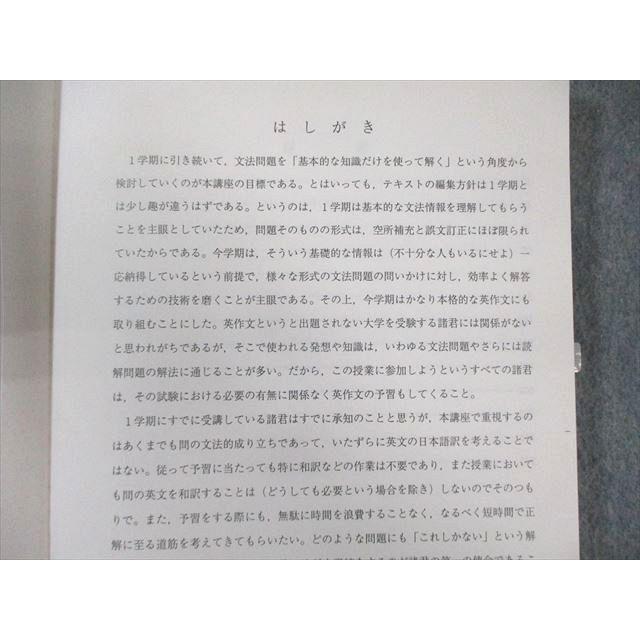 はしがき
1学期に引き続いて，文法問題を「基本的な知識だけを使って解く」という角度から
検討していくのが本講座の目標である。とはいっても，テキストの編集方針は1学期と
は少し趣が違うはずである。というのは，1学期は基本的な文法情報を理解してもらう
ことを主眼としていたため，問題そのものの形式は，空所補充と誤文訂正にほぼ限られ
ていたからである。今学期は，そういう基礎的な情報は（不十分な人もいるにせよ）一
応納得しているという前提で，様々な形式の文法問題の問いかけに対し，効率よく解答
するための技術を磨くことが主眼である。その上，今学期はかなり本格的な英作文にも
取り組むことにした。英作文というと出題されない大学を受験する諸君には関係がない
と思われがちであるが，そこで使われる発想や知識は，いわゆる文法問題やさらには読
解問題の解法に通じることが多い。だから，この授業に参加しようというすべての諸君
は，その試験における必要の有無に関係なく英作文の予習もしてくること。
1学期にすでに受講している諸君はすでに承知のことと思うが，本講座で重視するの
はあくまでも問の文法的成り立ちであって，いたずらに英文の日本語訳を考えることで
はない。従って予習に当たっても特に和訳などの作業は不要であり，また授業において
も問の英文を和訳することは（どうしても必要という場合を除き）しないのでそのつも
りで。また，予習をする際にも，無駄に時間を浪費することなく，なるべく短時間で正
解に至る道筋を考えてきてもらいたい。どのような問題にも「これしかない」という解